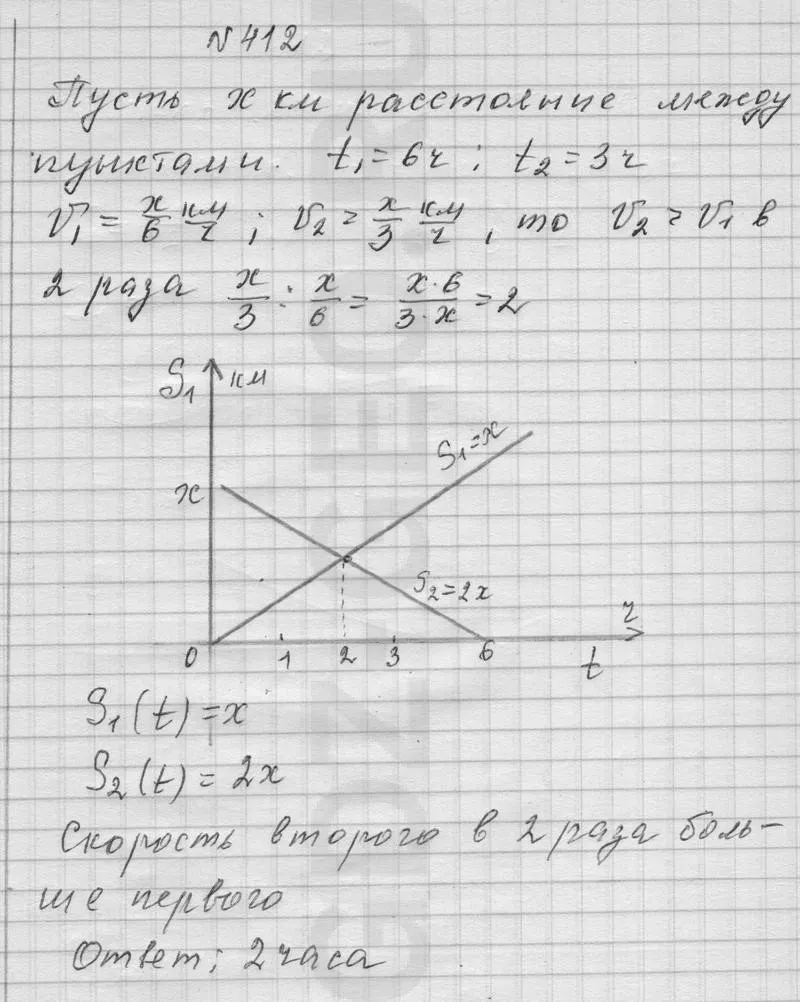 N 412
Пусть x км расстояние между
пунктами. t₁ = 6ч ; t₂ = 3ч
V₁ = x/6 км/ч ; V₂ = x/3 км/ч , то V₂ > V₁ в
2 раза x/3 : x/6 = x·6/3·x = 2
S₁ км
S₁=x
x
S₂=2x
ч
0 1 2 3 6 t
S₁(t) = x
S₂(t) = 2x
Скорость второго в 2 раза боль-
ше первого
Ответ; 2 часа